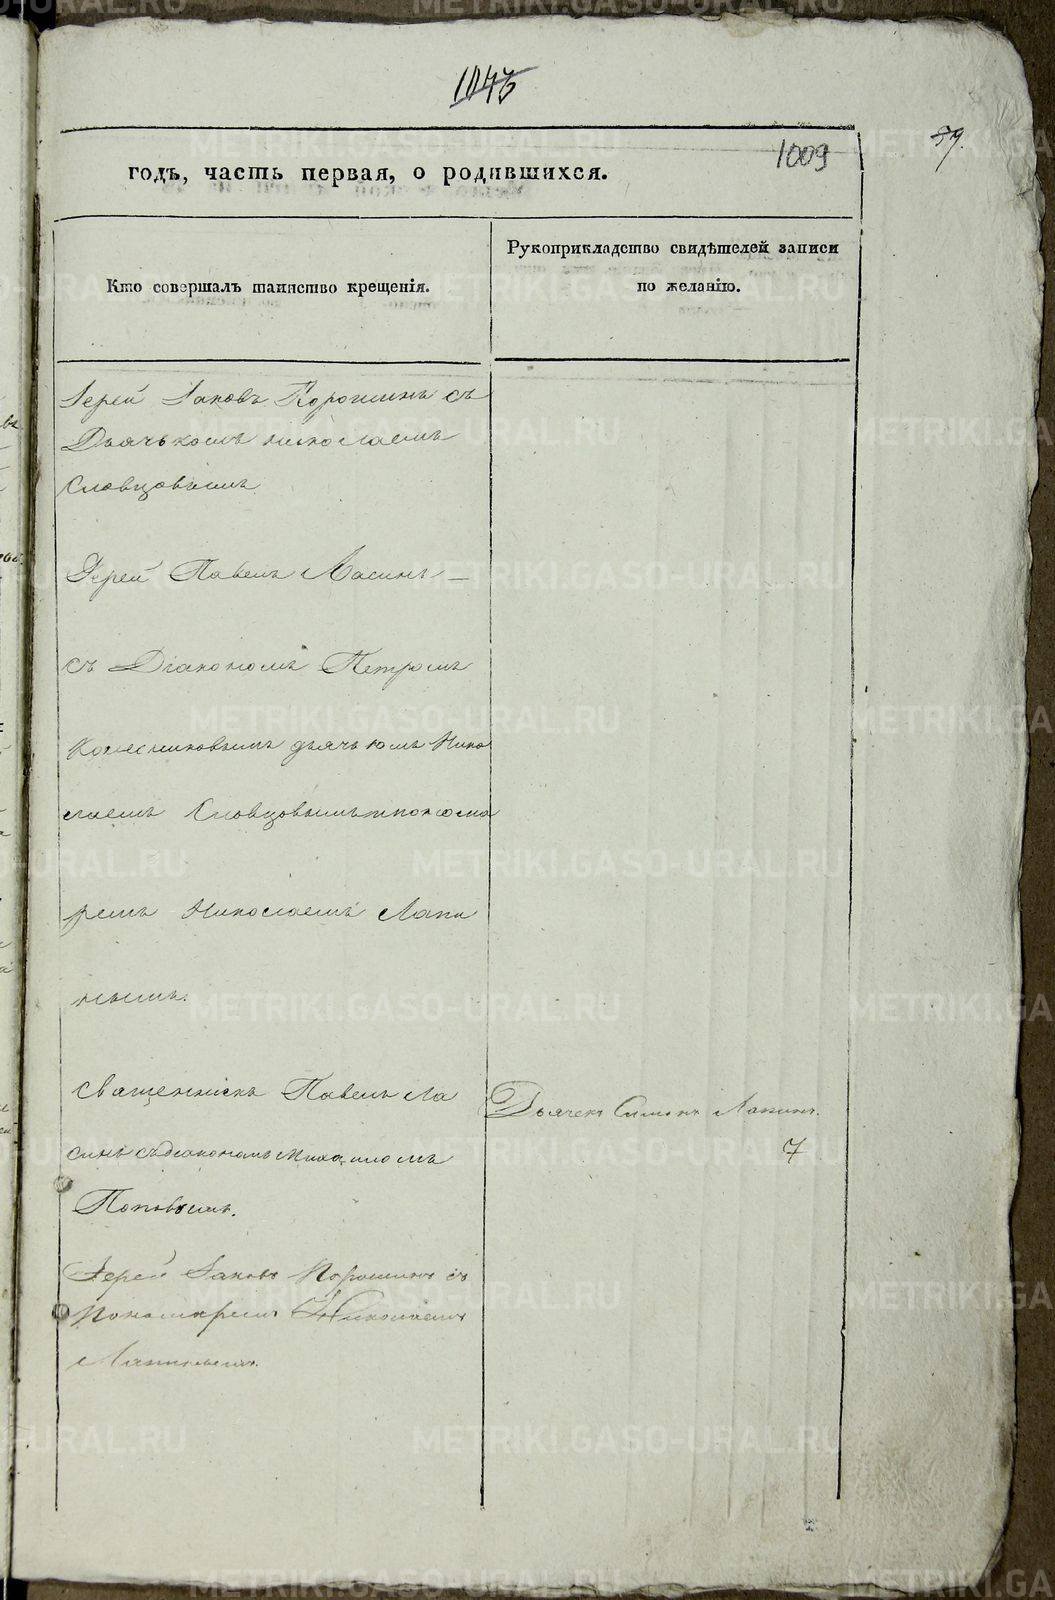 1009
59.
годъ, часть первая, о родившихся.
Кто совершалъ таинство крещенія.
Рукоприкладство свидѣтелей записи
по желанію.
Іерей Іаковъ Порошинъ съ
Дьячькомъ николаемъ
Словцовымъ
Іерей Павелъ Ласинъ —
съ Діакономъ Петромъ
дьячькомъ Нико
лаемъ Словцовымъ и поно ма
ремъ Николаемъ Лапи
нымъ.
священникъ Павелъ Ла
синъ съ діакономъ Михаиломъ
Поповымъ.
Дьячекъ Симонъ Лапинъ.
7
Іерей Іаковъ Порошинъ съ
Пономаремъ Николаемъ
Лапинымъ.
METRIKI.GASO-URAL.RU